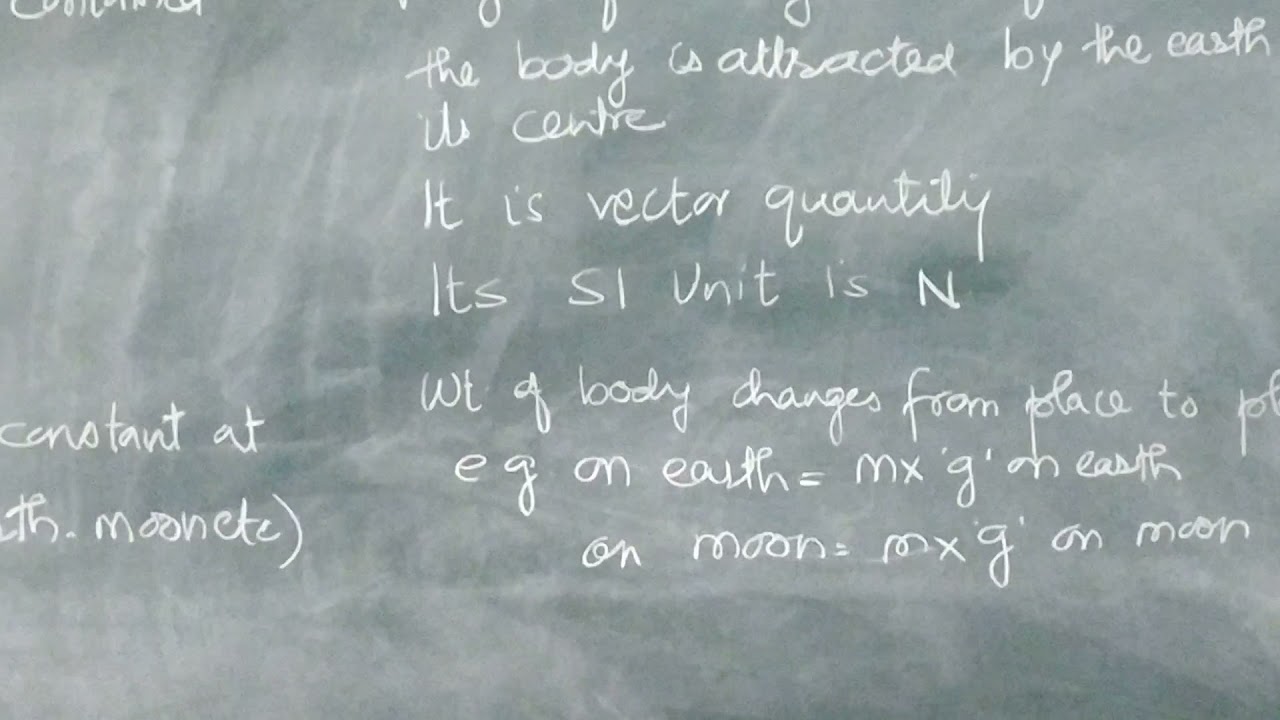 the body is attracted by the earth
its centre
It is vector quantity
Its SI Unit is N
Wt of body changes from place to
constant at
eg on earth = mx 'g' on earth
moon etc)
on moon = mx 'g' on moon